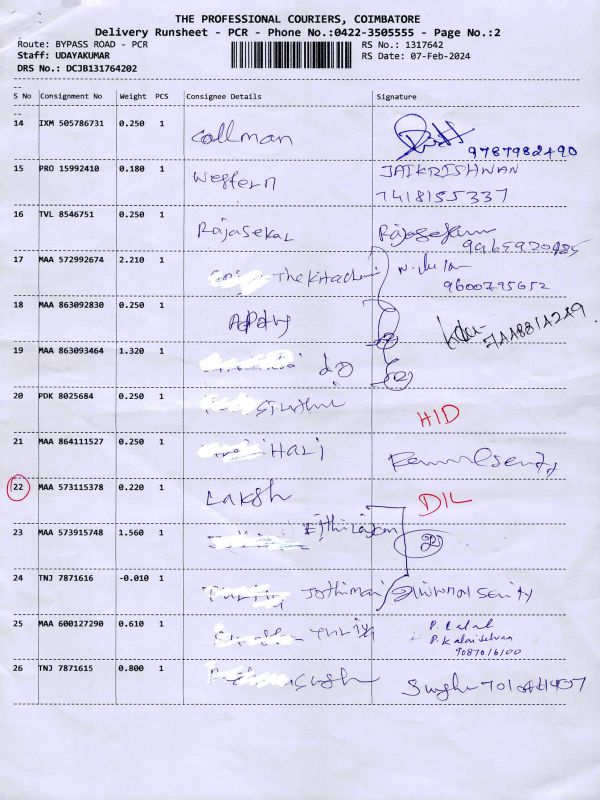 THE PROFESSIONAL COURIERS, COIMBATORE
Delivery Runsheet - PCR - Phone No.:0422-3505555 - Page No.:2
Route: BYPASS ROAD - PCR RS No.: 1317642
Staff: UDAYAKUMAR RS Date: 07-Feb-2024
DRS No.: DCJB131764202
S No Consignment No Weight PCS Consignee Details Signature
14 IXM 505786731 0.250 1 Callman
9787982490
15 PRO 15992410 0.180 1 Western JAIKRISHNAN
7418155337
16 TVL 8546751 0.250 1 Rajasekar Rajasekar
9965920485
17 MAA 572992674 2.210 1
9600795652
18 MAA 863092830 0.250 1
19 MAA 863093464 1.320 1 do
20 PDK 8025684 0.250 1 HID
21 MAA 864111527 0.250 1 Hari
22 MAA 573115378 0.220 1 Laksh DIL
23 MAA 573915748 1.560 1 Ejthirajan
24 TNJ 7871616 -0.010 1 Jothimani
25 MAA 600127290 0.610 1
P. Kalaiselvan
9087016100
26 TNJ 7871615 0.800 1